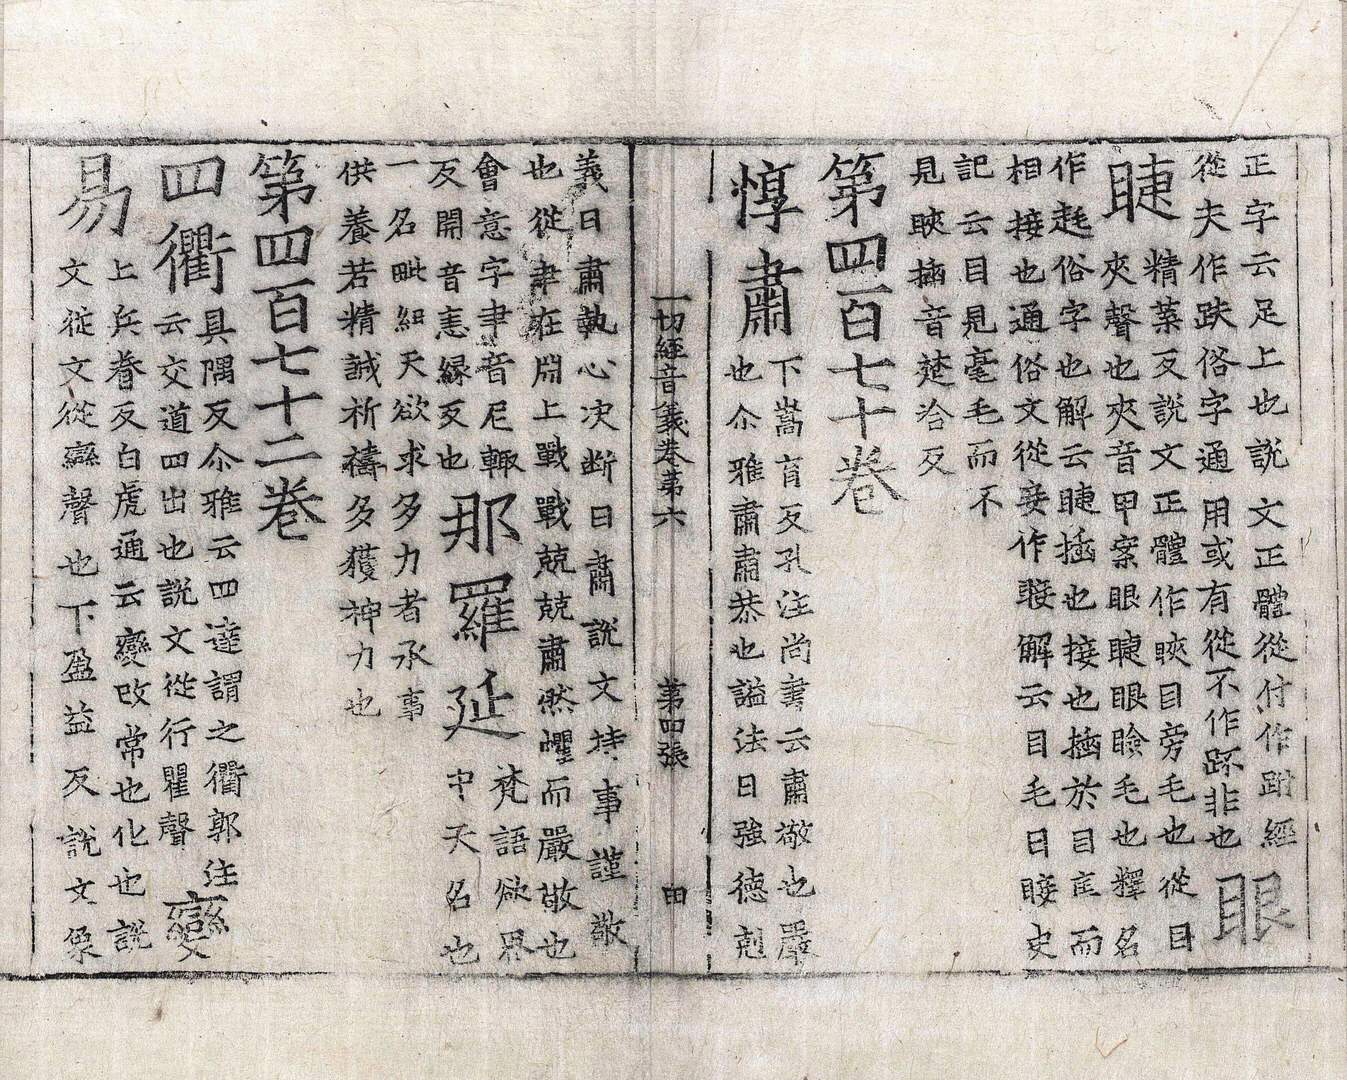 正字云足上也說文正體從付作跗經
從夫作趺俗字通用或有從不作䟔非也眼
睫精葉反說文正體作䀹目旁毛也從目
夾聲也夾音甲案眼睫眼瞼毛也釋名
作䞨俗字也解云睫插也接也插於目眶而
相接也通俗文從妾作䁉解云目毛曰䁉史
記云目見毫毛而不
見䀹插音楚洽反
第四百七十卷
惇肅下嵩育反孔注尚書云肅敬也嚴
也尒雅肅肅恭也謚法曰強德剋
一切經音義卷第六 第四張 田
義曰肅執心決斷曰肅說文持事謹敬
也從聿在𣶒上戰戰兢兢肅然懼而嚴敬也
會意字聿音尼輒
反𣶒音恚緣反也那羅延梵語欲界
中天名也
一名毗紐天欲求多力者承事
供養若精誠祈禱多獲神力也
第四百七十二卷
四衢具隅反尒雅云四達謂之衢郭注
云交道四出也說文從行瞿聲變
易上兵眷反白虎通云變改常也化也說
文從文從䜌聲也下盈益反說文象